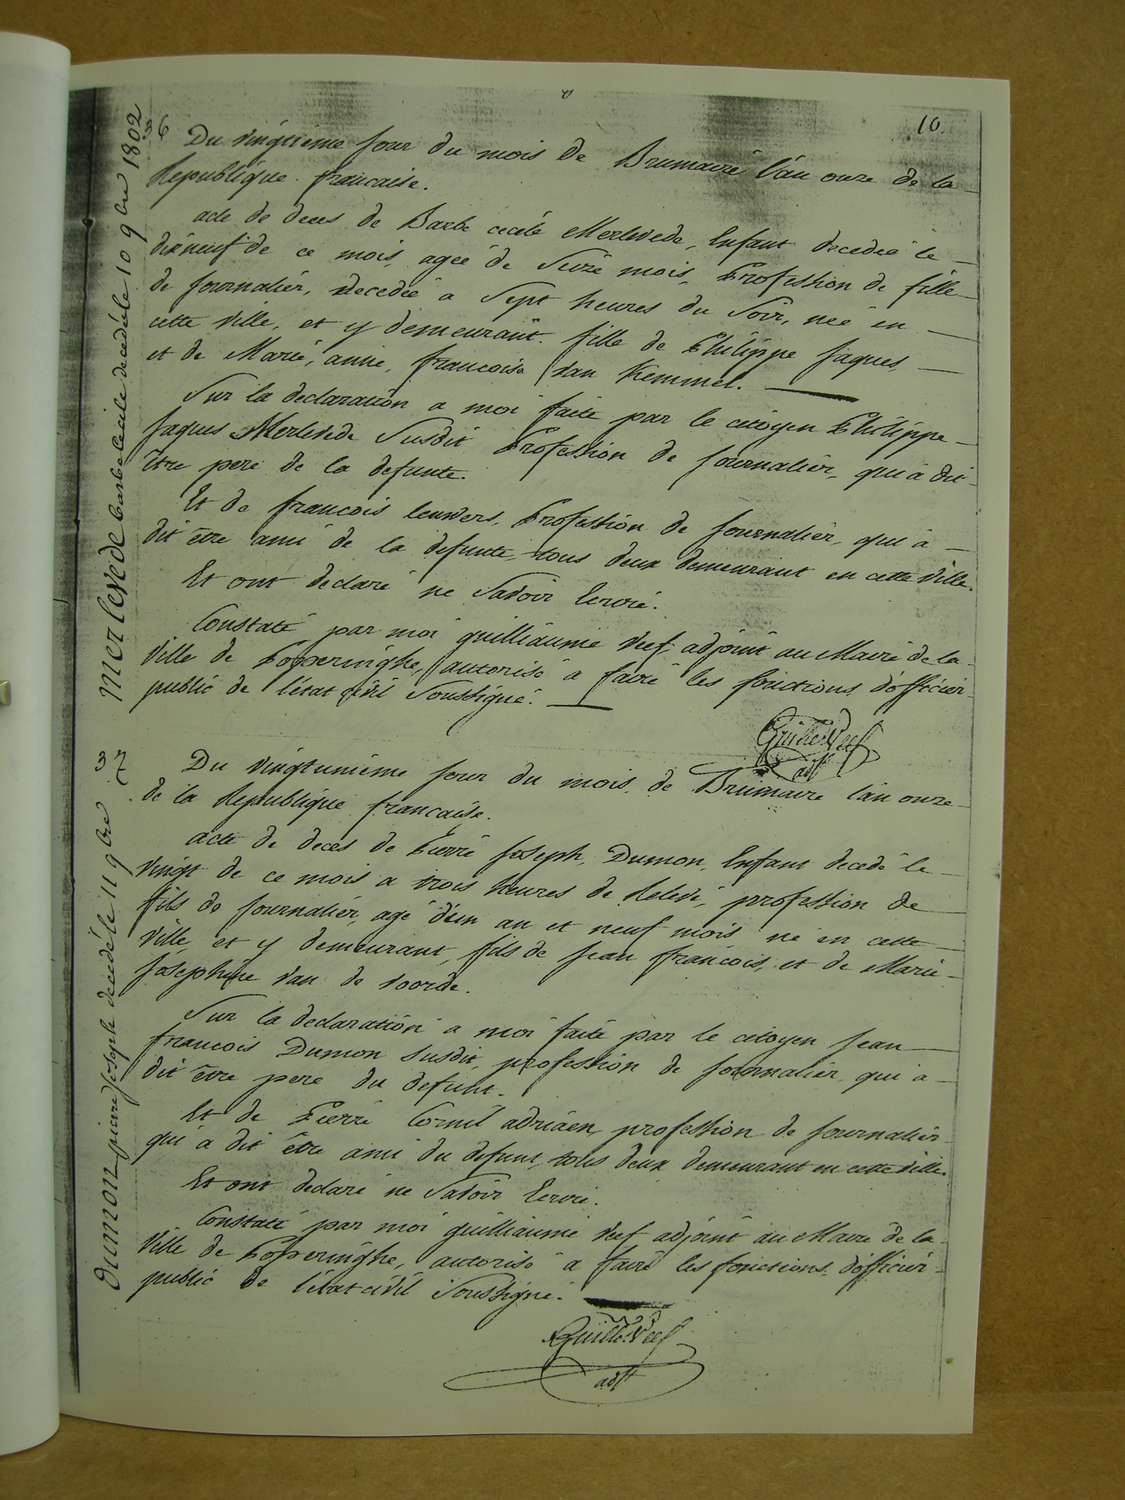 10.
36
merlevede barbe cecile decedé le 10 9bre 1802
Du vingtieme jour du mois de Brumaire l'an onze de la
Republique francaise.
acte de deces de Barbe cecile Merlevede, Enfant decedeé le
dixneuf de ce mois, ageé de Seize mois, Profession de fille
de journalier, decedeé a Sept heures du Soir, neé en
cette Ville, et y demeurant. fille de Philippe Jaques,
et de Marie, anne, francoise Van Kemmel.
Sur la declaration a moi faite par le citoyen Philippe
Jaques Merlevede Susdit Profession de journalier, qui a dit
être pere de la defunte.
Et de francois leuwers, Profession de journalier, qui a
dit être ami de la defunte, tous deux demeurant en cette Ville.
Et ont declaré ne Savoir Ecrire.
Constaté par moi guilliaume Veef adjoint au Maire de la
Ville de Popperinghe, autorisé a faire les fonctions d'officier
public de l'état civil Soussigné.
Guille Veef
adjt
37
dumon pierre joseph decedé le 11 9bre
Du vingtunieme jour du mois de Brumaire l'an onze
de la Republique francaise.
acte de deces de Pierre Joseph Dumon, Enfant decedé le
vingt de ce mois a trois heures de Relevé, profession de
fils de journalier, agé d'un an et neuf mois né en cette
Ville, et y demeurant, fils de jean francois, et de Marie
Josephine Van de voorde.
Sur la declaration a moi faite par le citoyen Jean
francois Dumon susdit, profession de journalier, qui a
dit être pere du defunt.
Et de Pierre Cornil adriaen, profession de journalier
qui a dit être ami du defunt, tous deux demeurant en cette ville.
Et ont declaré ne Savoir Ecrire.
Constaté par moi guilliaume Veef adjoint au Maire de la
Ville de Popperinghe, autorisé a faire les fonctions d'officier
public de l'état civil Soussigné.
Guille Veef
adjt